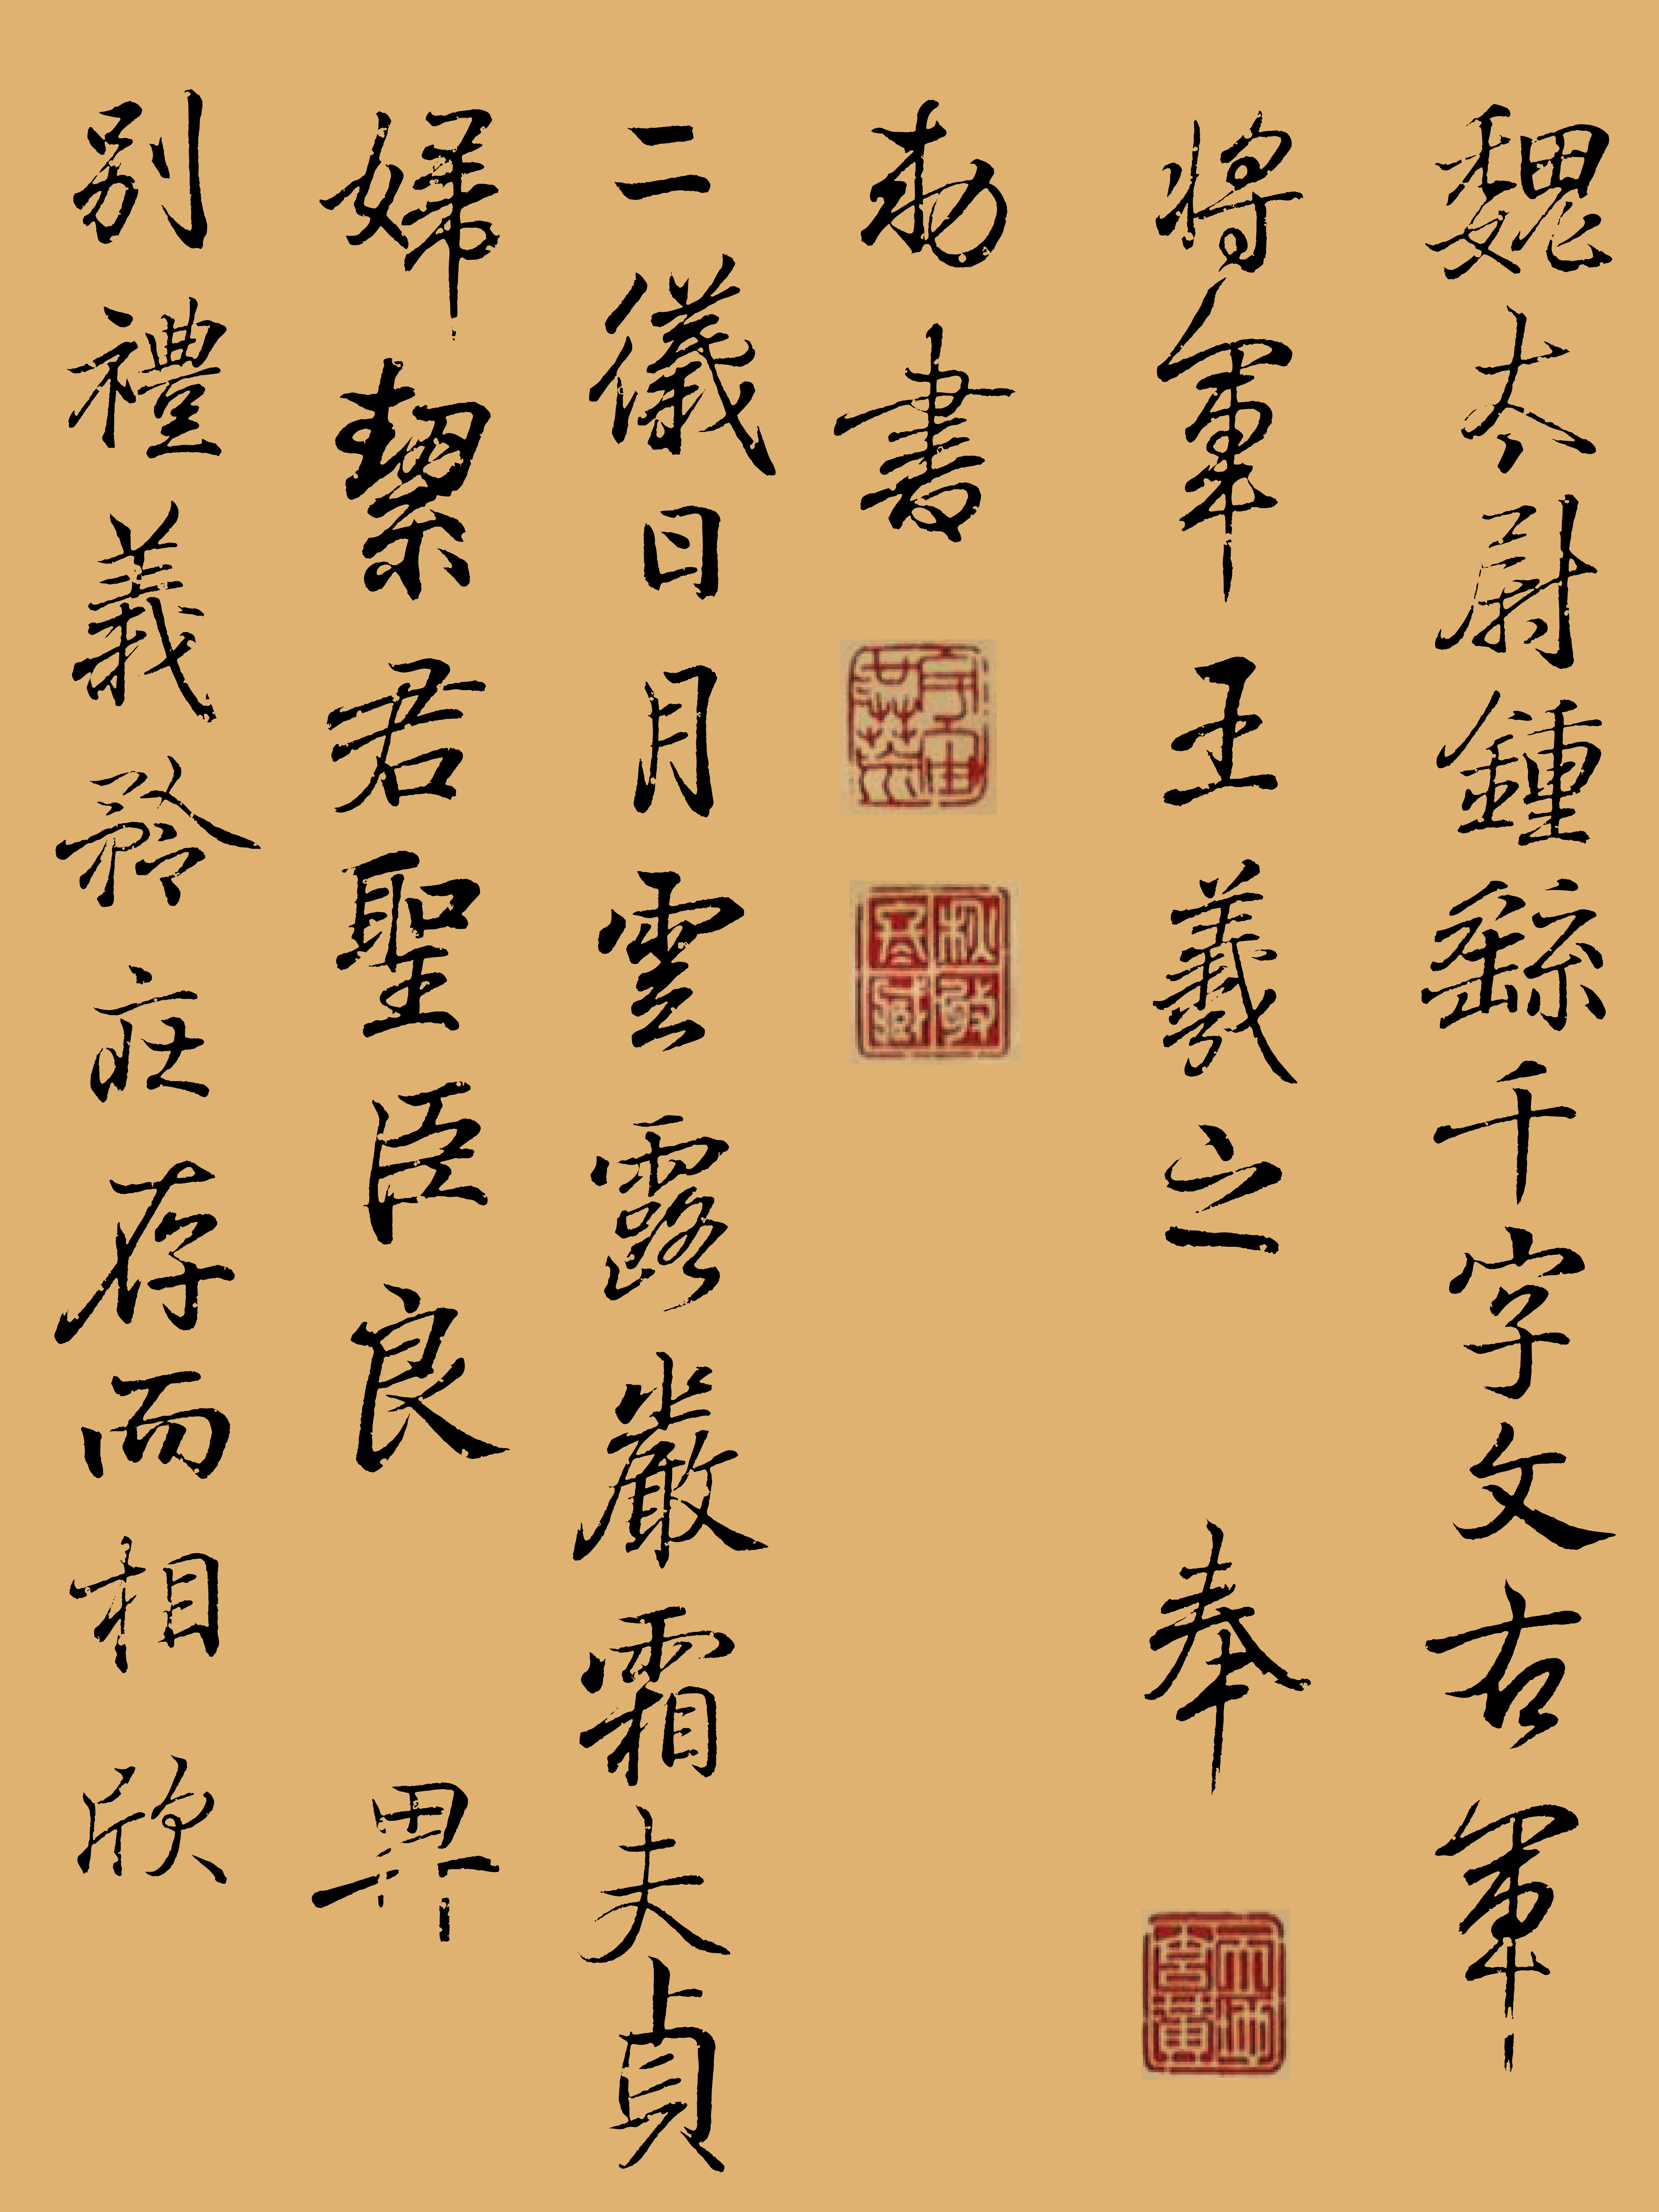 魏太尉鍾繇千字文右軍
將軍王羲之奉
勅書
二儀日月雲露嚴霜夫貞
婦絜君聖臣良畀
別禮義矜莊存而相欣